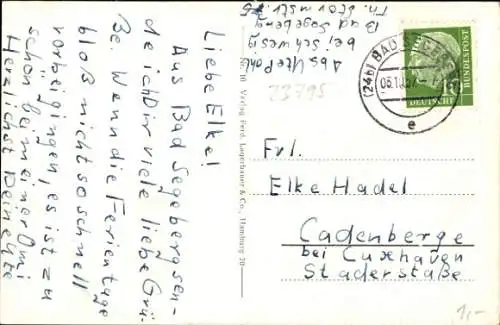 Liebe Elke!
Aus Bad Segeberg sen-
de ich Dir viele liebe Grü-
ße. Wenn die Ferientage
bloß nicht so schnell
vorbeigingen, es ist zu
schön bei meiner Omi
Herzlichst Deine Ute
Abs. Ute Pohl
bei Schwesig
Bad Segeberg
Th. Stormstr. 5
23795
No. 10 Verlag Ferd. Lagerbauer & Co., Hamburg 20
(24b) BAD SEGEBERG
e
DEUTSCHE
BUNDESPOST
10
Frl.
Elke Hadel
Cadenberge
bei Cuxhaven
Staderstraße
1,-